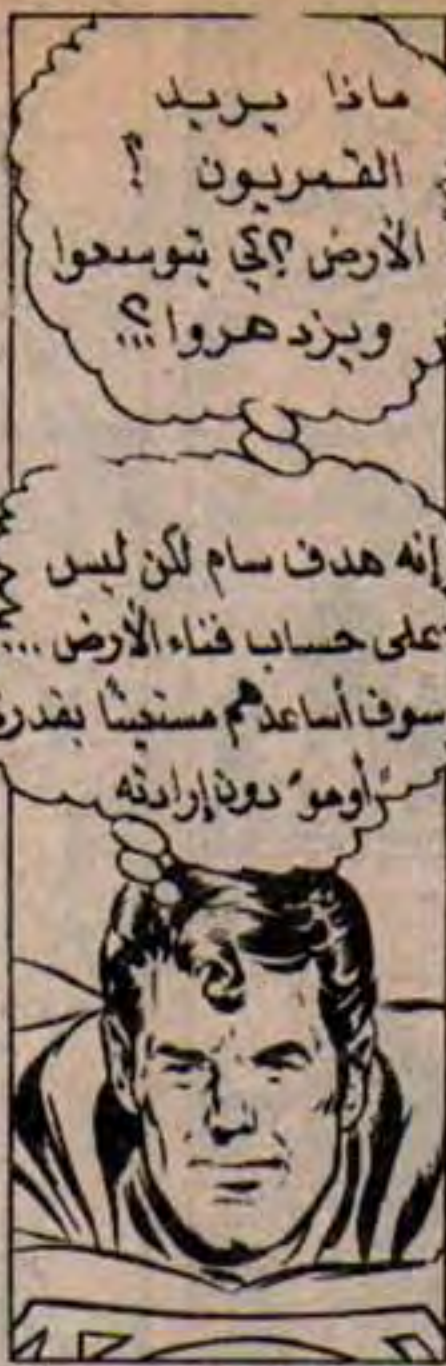 ماذا يريد
القمريون ؟
الأرض ؟ كي يتوسعوا
ويزدهروا ؟!
إنه هدف سام لكن ليس
على حساب فناء الأرض ...
سوف أساعدهم مستعينًا بقدرة
"أوهو" دون إرادته